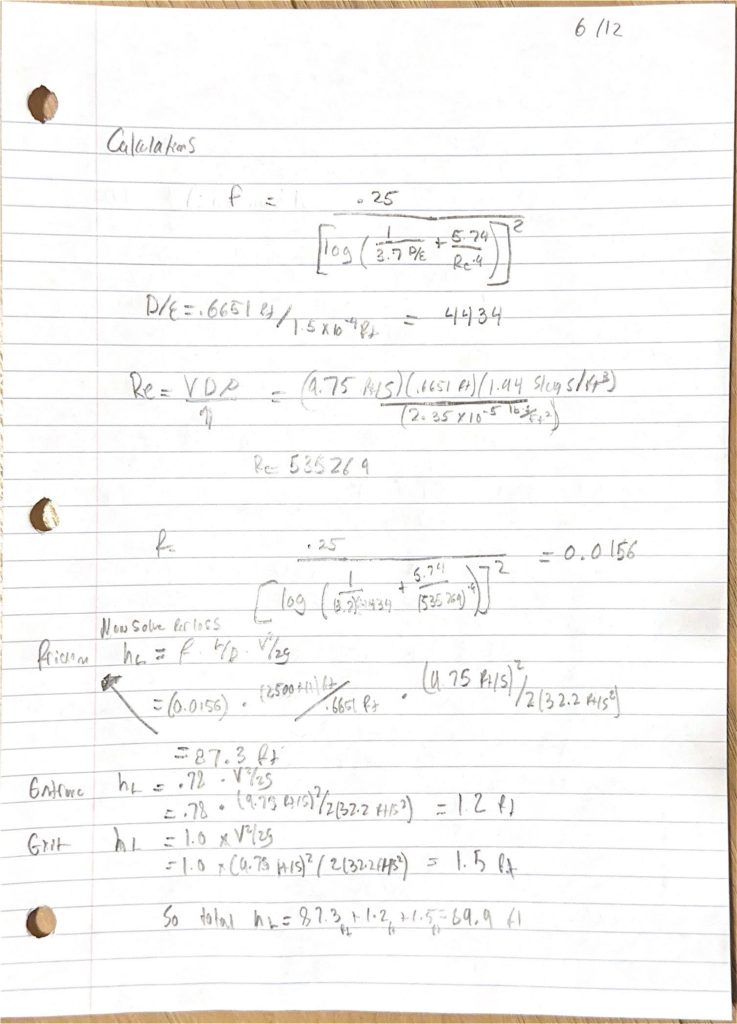 6/12
Calculations
f = .25 / [log ( 1 / 3.7 D/ε + 5.74 / Re^.9 )]^2
D/ε = .6651 ft / 1.5 x 10^-4 ft = 4434
Re = VDρ / η = (9.75 ft/s)(.6651 ft)(1.94 slugs/ft^3) / (2.35 x 10^-5 lb·s/ft^2)
Re = 535269
f = .25 / [log ( 1 / (3.7)(4434) + 5.74 / (535269)^.9 )]^2 = 0.0156
Now solve for loss
friction hL = f · L/D · V^2/2g
= (0.0156) · (2500+11) ft / .6651 ft · (9.75 ft/s)^2 / 2(32.2 ft/s^2)
= 87.3 ft
Entrance hL = .78 · V^2/2g
= .78 · (9.75 ft/s)^2 / 2(32.2 ft/s^2) = 1.2 ft
Exit hL = 1.0 x V^2/2g
= 1.0 x (9.75 ft/s)^2 / 2(32.2 ft/s^2) = 1.5 ft
So total hL = 87.3 ft + 1.2 ft + 1.5 ft = 89.9 ft